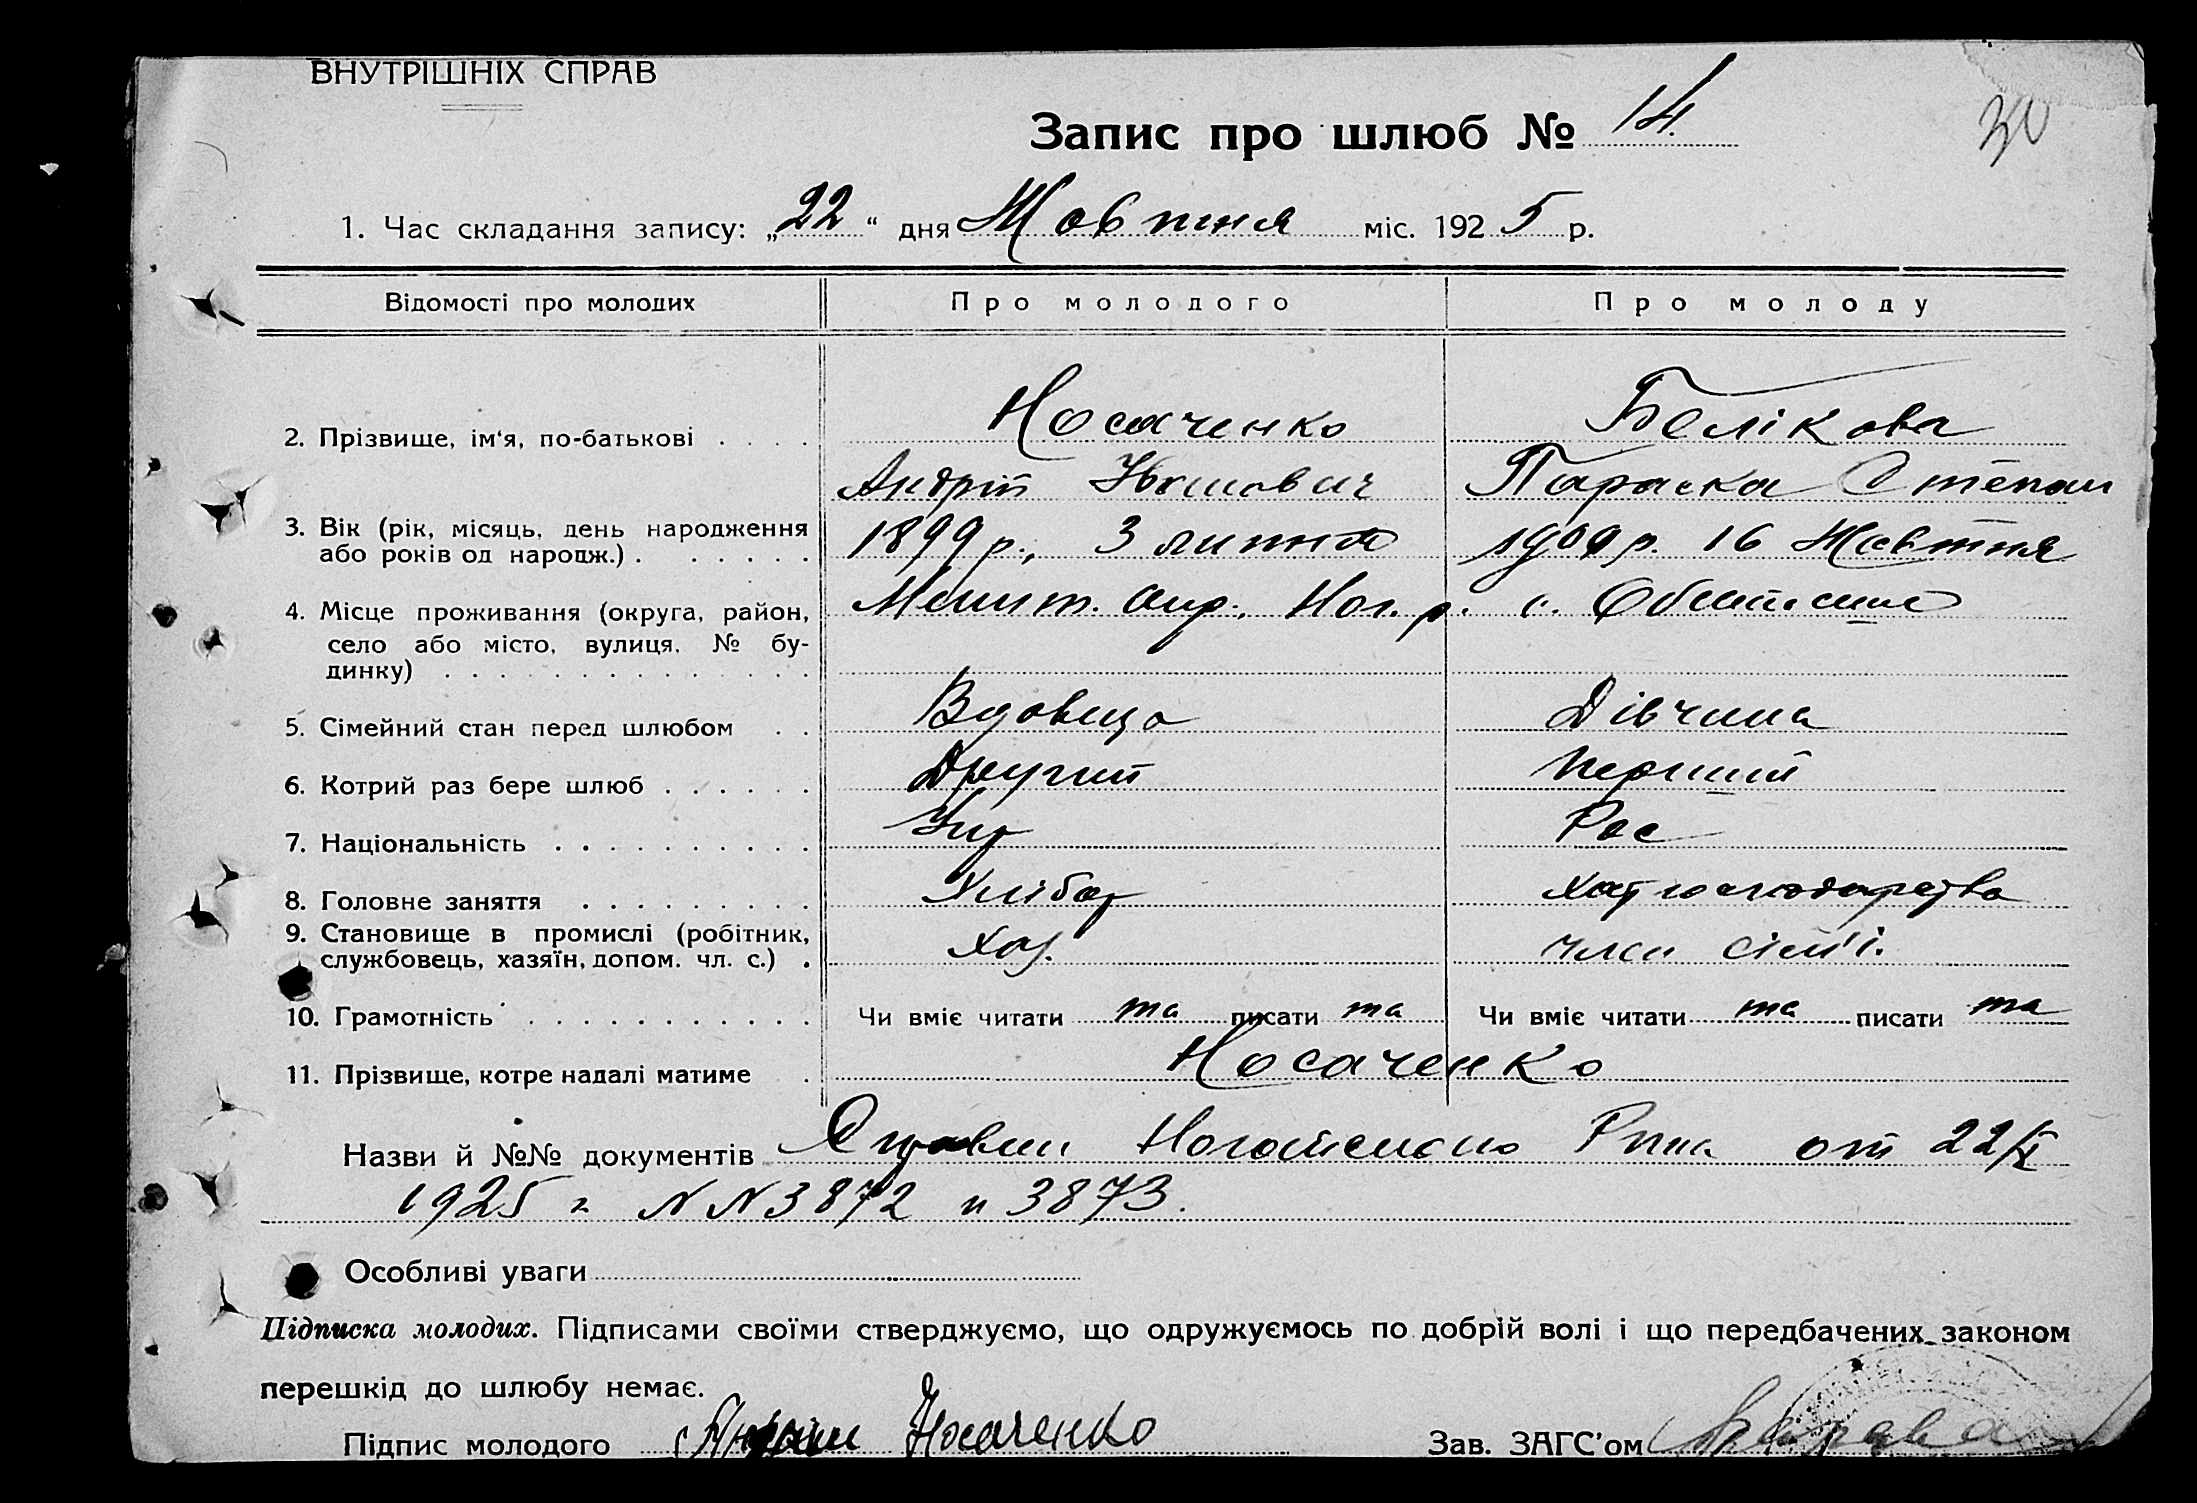 ВНУТРІШНІХ СПРАВ
Запис про шлюб № 14.
30
1. Час складання запису: „22“ дня Жовтня міс. 1925 р.
Відомості про молодих Про молодого Про молоду
Носаченко Белікова
2. Прізвище, ім‘я, по-батькові
Андрій Параска Степан
3. Вік (рік, місяць, день народження 1899 р., 3 липня 1909 р. 16 Жовтня
або років од народж.)
4. Місце проживання (округа, район, Меліт. Окр., Ног. р. с.
село або місто, вулиця, № бу-
динку)
5. Сімейний стан перед шлюбом Вдовець Дівчина
6. Котрий раз бере шлюб Другий Перший
7. Національність Укр Рос
8. Головне заняття Хлібор Хат господарства
9. Становище в промислі (робітник, Хаз. член сім'ї.
службовець, хазяїн, допом. чл. с.)
10. Грамотність Чи вміє читати та писати та Чи вміє читати та писати та
11. Прізвище, котре надалі матиме Носаченко
Назви й №№ документів от 22/X
1925 г. NN 3872 и 3873.
Особливі уваги
Підписка молодих. Підписами своїми стверджуємо, що одружуємось по добрій волі і що передбачених законом
перешкід до шлюбу немає.
Підпис молодого Носаченко Зав. ЗАГС’ом